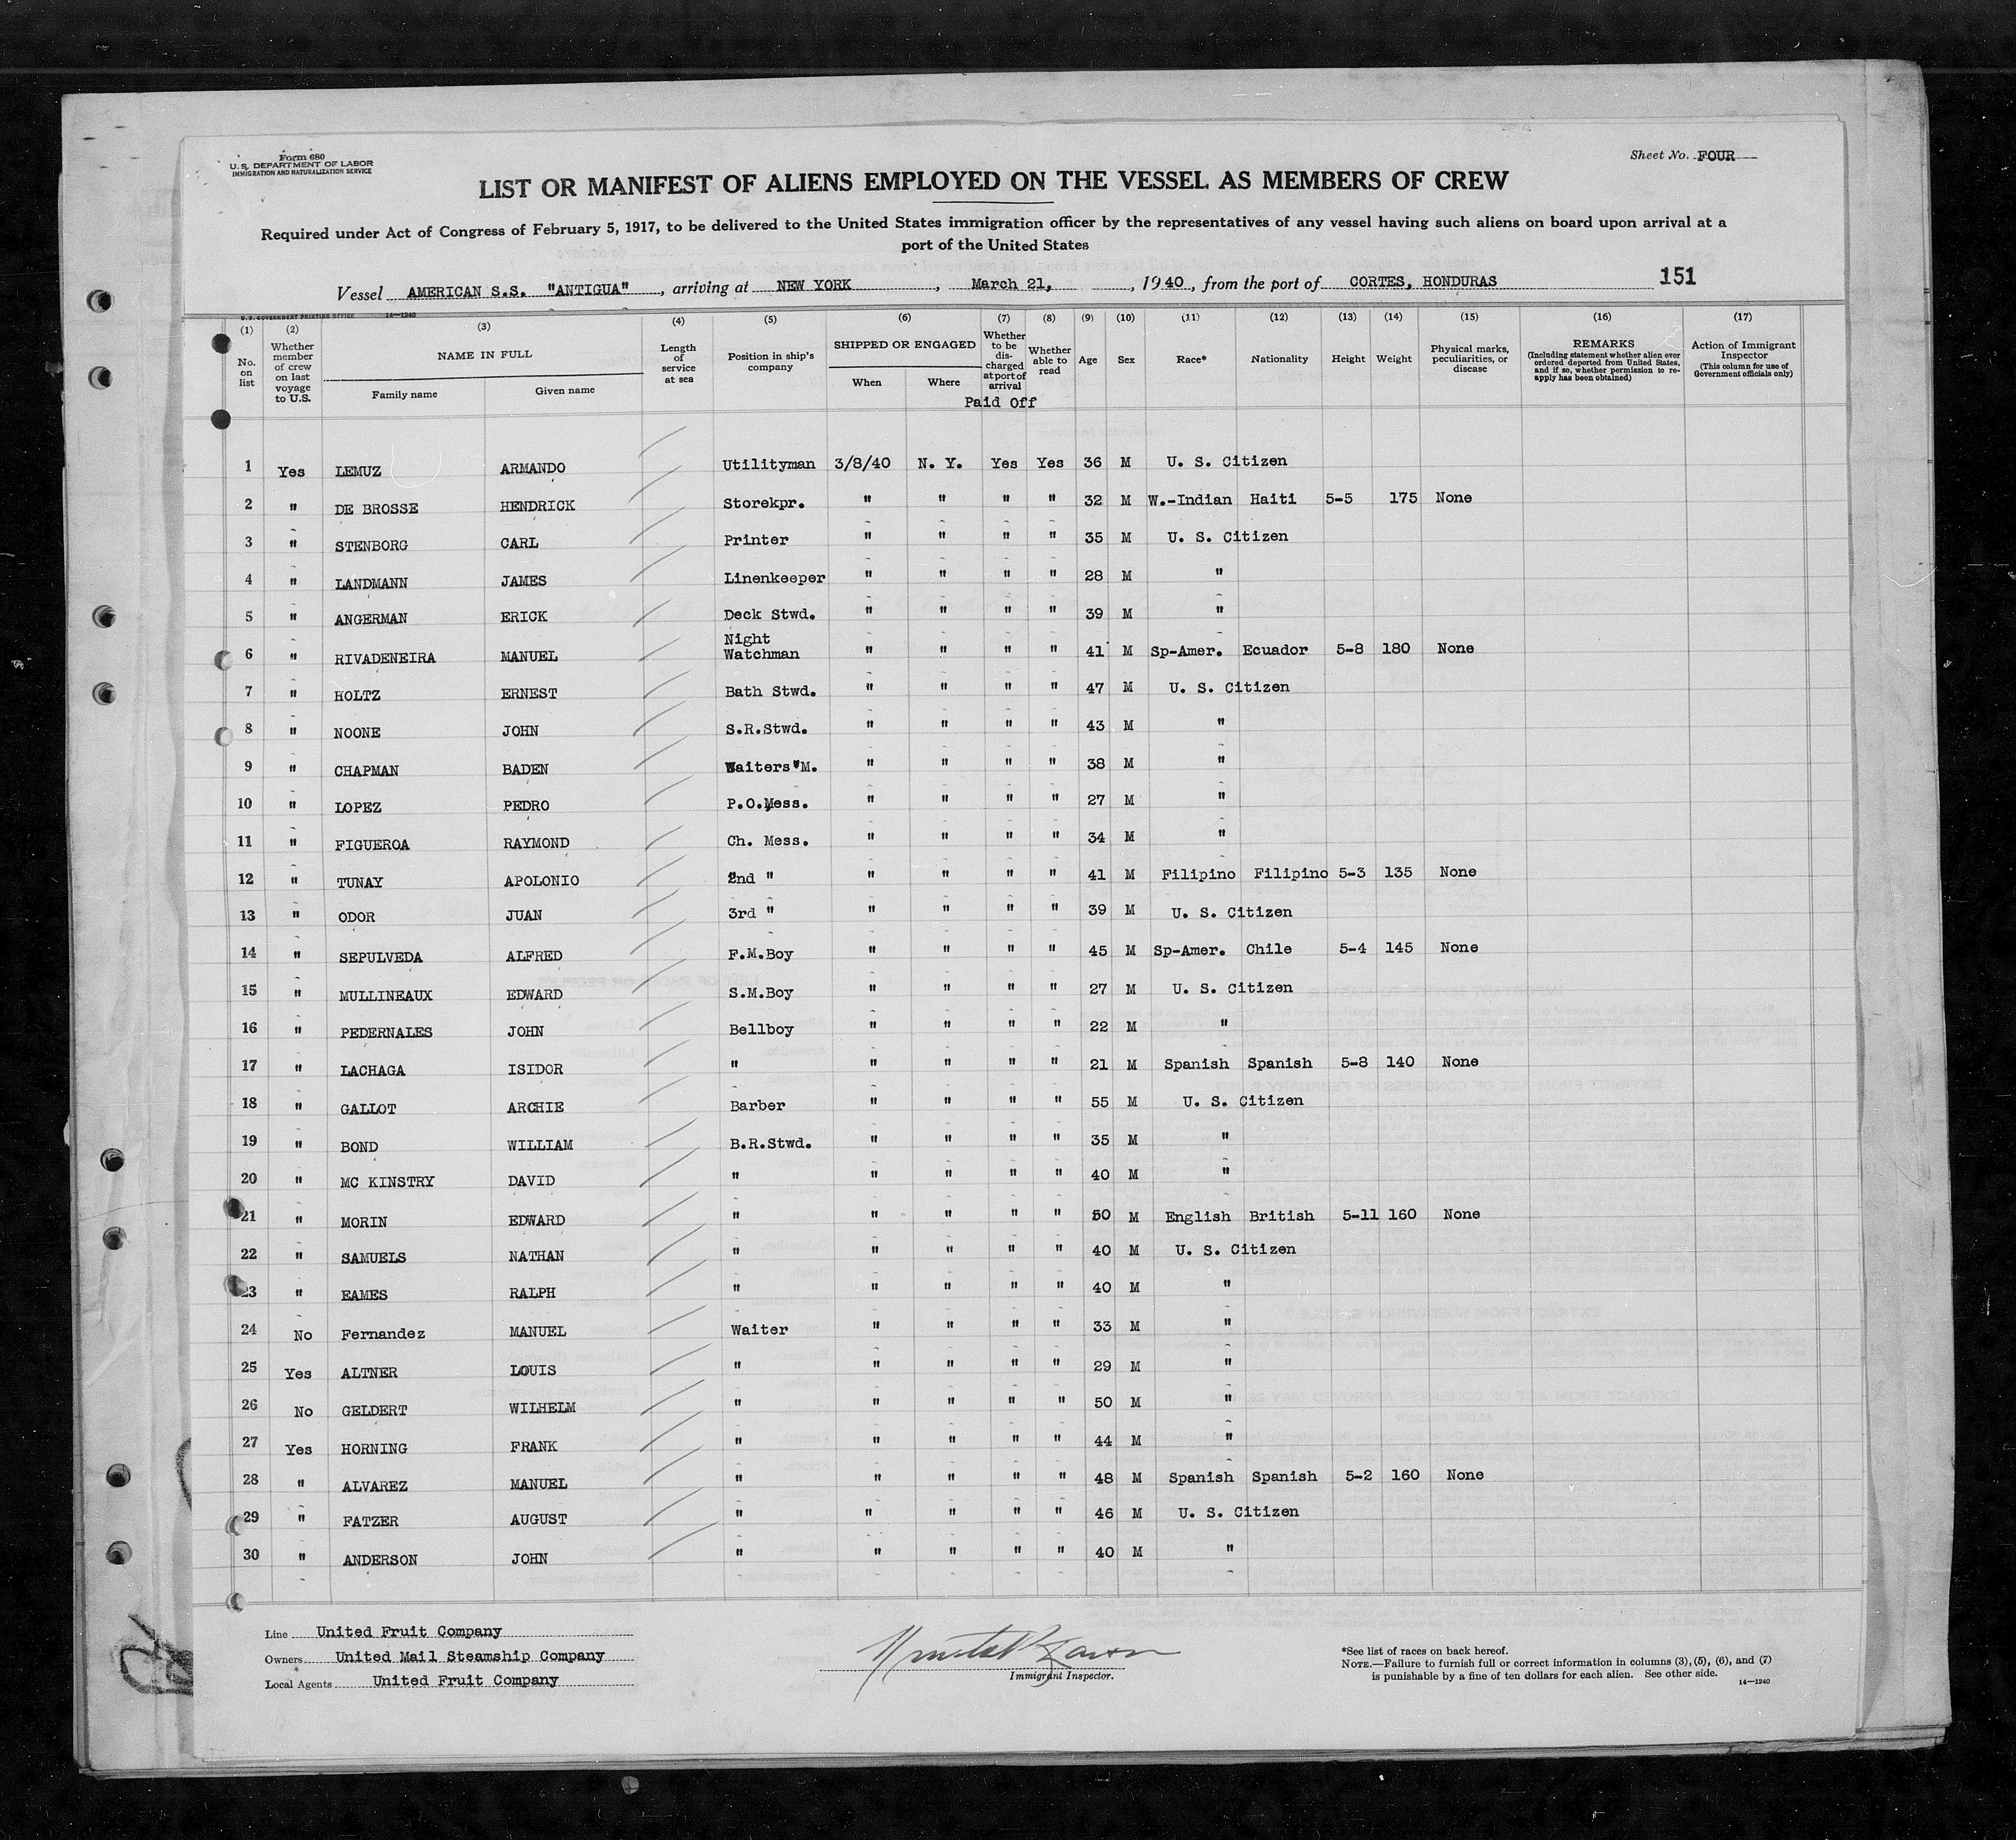 Form 680
U. S. DEPARTMENT OF LABOR
IMMIGRATION AND NATURALIZATION SERVICE
Sheet No. FOUR
LIST OR MANIFEST OF ALIENS EMPLOYED ON THE VESSEL AS MEMBERS OF CREW
Required under Act of Congress of February 5, 1917, to be delivered to the United States immigration officer by the representatives of any vessel having such aliens on board upon arrival at a
port of the United States
Vessel AMERICAN S.S. "ANTIGUA", arriving at NEW YORK, March 21, 1940, from the port of CORTES, HONDURAS 151
U. S. GOVERNMENT PRINTING OFFICE 14—1240
(1) No. on list
(2) Whether member of crew on last voyage to U.S.
(3) NAME IN FULL Family name Given name
(4) Length of service at sea
(5) Position in ship's company
(6) SHIPPED OR ENGAGED When Where
(7) Whether to be discharged at port of arrival
(8) Whether able to read
Paid Off
(9) Age
(10) Sex
(11) Race*
(12) Nationality
(13) Height
(14) Weight
(15) Physical marks, peculiarities, or disease
(16) REMARKS (Including statement whether alien ever ordered deported from United States, and if so, whether permission to reapply has been obtained)
(17) Action of Immigrant Inspector (This column for use of Government officials only)
1 Yes LEMUZ ARMANDO Utilityman 3/8/40 N. Y. Yes Yes 36 M U. S. Citizen
2 " DE BROSSE HENDRICK Storekpr. " " " " 32 M W.-Indian Haiti 5-5 175 None
3 " STENBORG CARL Printer " " " " 35 M U. S. Citizen
4 " LANDMANN JAMES Linenkeeper " " " " 28 M "
5 " ANGERMAN ERICK Deck Stwd. " " " " 39 M "
6 " RIVADENEIRA MANUEL Night Watchman " " " " 41 M Sp-Amer. Ecuador 5-8 180 None
7 " HOLTZ ERNEST Bath Stwd. " " " " 47 M U. S. Citizen
8 " NOONE JOHN S.R.Stwd. " " " " 43 M "
9 " CHAPMAN BADEN Waiters'M. " " " " 38 M "
10 " LOPEZ PEDRO P.O.Mess. " " " " 27 M "
11 " FIGUEROA RAYMOND Ch. Mess. " " " " 34 M "
12 " TUNAY APOLONIO 2nd " " " " " 41 M Filipino Filipino 5-3 135 None
13 " ODOR JUAN 3rd " " " " " 39 M U. S. Citizen
14 " SEPULVEDA ALFRED F.M.Boy " " " " 45 M Sp-Amer. Chile 5-4 145 None
15 " MULLINEAUX EDWARD S.M.Boy " " " " 27 M U. S. Citizen
16 " PEDERNALES JOHN Bellboy " " " " 22 M "
17 " LACHAGA ISIDOR " " " " " 21 M Spanish Spanish 5-8 140 None
18 " GALLOT ARCHIE Barber " " " " 55 M U. S. Citizen
19 " BOND WILLIAM B.R.Stwd. " " " " 35 M "
20 " MC KINSTRY DAVID " " " " " 40 M "
21 " MORIN EDWARD " " " " " 50 M English British 5-11 160 None
22 " SAMUELS NATHAN " " " " " 40 M U. S. Citizen
23 " EAMES RALPH " " " " " 40 M "
24 No Fernandez MANUEL Waiter " " " " 33 M "
25 Yes ALTNER LOUIS " " " " " 29 M "
26 No GELDERT WILHELM " " " " " 50 M "
27 Yes HORNING FRANK " " " " " 44 M "
28 " ALVAREZ MANUEL " " " " " 48 M Spanish Spanish 5-2 160 None
29 " FATZER AUGUST " " " " " 46 M U. S. Citizen
30 " ANDERSON JOHN " " " " " 40 M "
Line United Fruit Company
Owners United Mail Steamship Company
Local Agents United Fruit Company
Immigrant Inspector.
*See list of races on back hereof.
NOTE.—Failure to furnish full or correct information in columns (3), (5), (6), and (7)
is punishable by a fine of ten dollars for each alien. See other side.
14—1240